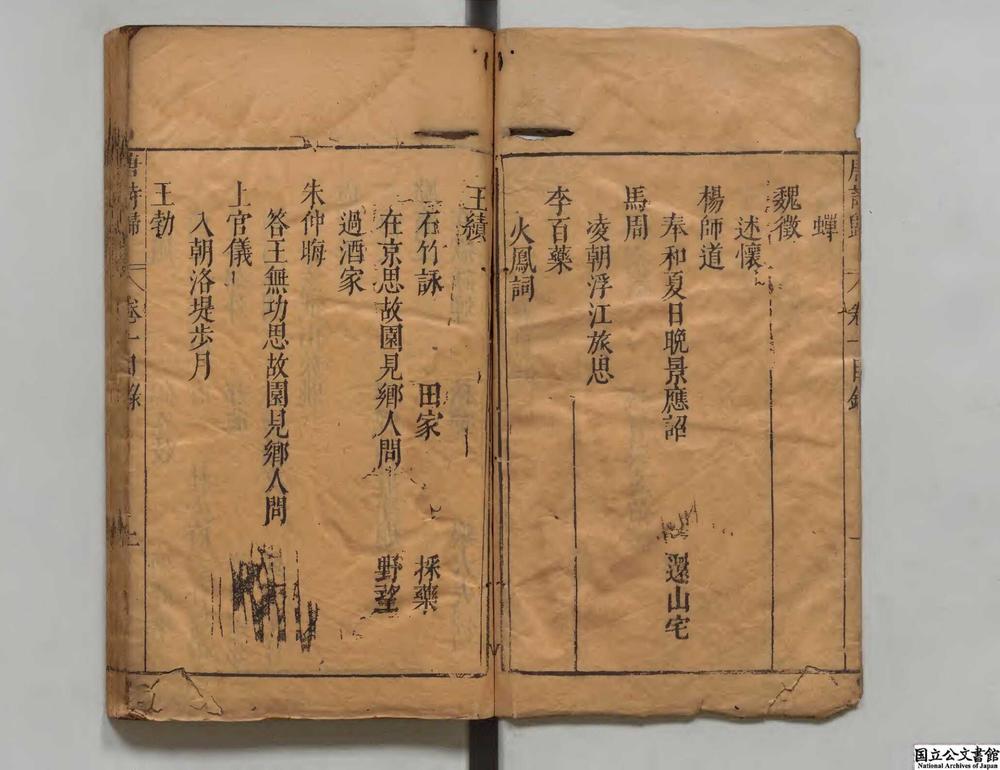 蟬
魏徵
述懷
楊師道
奉和夏日晩景應詔 還山宅
馬周
凌朝浮江旅思
李百藥
火鳳詞
王績
石竹詠 田家 採藥
在京思故園見鄉人問 野望
過酒家
朱仲晦
答王無功思故園見鄉人問
上官儀
入朝洛堤步月
王勃
唐詩歸 卷一目錄
国立公文書館
National Archives of Japan